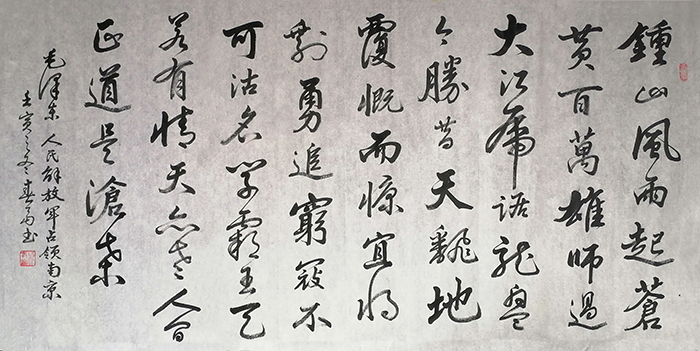 鍾山風雨起蒼
黄百萬雄師過
大江虎踞龍盤
今勝昔天翻地
覆慨而慷宜将
剩勇追窮寇不
可沽名学霸王天
若有情天亦老人间
正道是滄桑
毛澤东 人民解放军占领南京
壬寅之冬春书